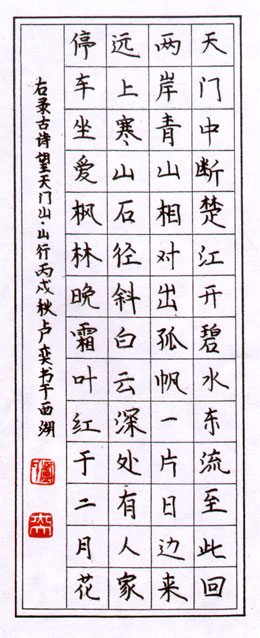 天门中断楚江开碧水东流至此回
两岸青山相对出孤帆一片日边来
远上寒山石径斜白云深处有人家
停车坐爱枫林晚霜叶红于二月花
右录古诗望天门山·山行丙戌秋卢奕书于西湖
奕